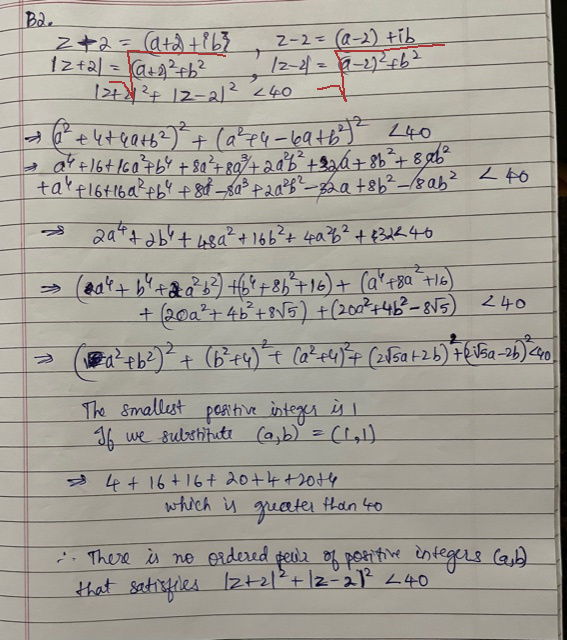 B2.
z+2 = (a+2)+ib} , z-2 = (a-2) +ib
|z+2| = √(a+2)²+b² , |z-2| = √(a-2)²+b²
|z+2|² + |z-2|² <40
⇒ (a²+4+4a+b²)² + (a²+4-6a+b²)² <40
⇒ a⁴+16+16a²+b⁴+8a²+8a³+2a²b²+32a+8b²+8ab²
+a⁴+16+16a²+b⁴+8a²-8a³+2a²b²-32a+8b²-8ab² < 40
⇒ 2a⁴+2b⁴+48a²+16b²+4a²b²+32<40
⇒ (a⁴+b⁴+2a²b²)+(b⁴+8b²+16)+(a⁴+8a²+16)
+(20a²+4b²+8√5)+(20a²+4b²-8√5) <40
⇒ (a²+b²)²+(b²+4)²+(a²+4)²+(2√5a+2b)²+(2√5a-2b)²<40
The smallest positive integer is 1
If we substitute (a,b) = (1,1)
⇒ 4+16+16+20+4+20+4
which is greater than 40
∴ There is no ordered pair of positive integers (a,b)
that satisfies |z+2|²+|z-2|² <40